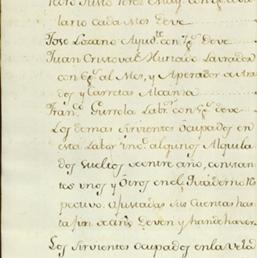 lario cada Mes Deve
Jose Lozano Ayudte. con 7ps. Deve
Juan Cristoval Hurtado Labrador
con ps. al Mes, y Aperador de Ara
dos y Carretas Alcanza
Franco. Gurrola Labr. con 5ps. deve
Los demas Sirvientes Ocupados en
esta Labor inclo. algunos Alquila
dos Sueltos entre año, constan
tes unos y Otros en el Quaderno Res
pectivo. Ajustadas sus Cuentas has
ta fin de año Deven y han de haver
Los Sirvientes ocupados en la Vela